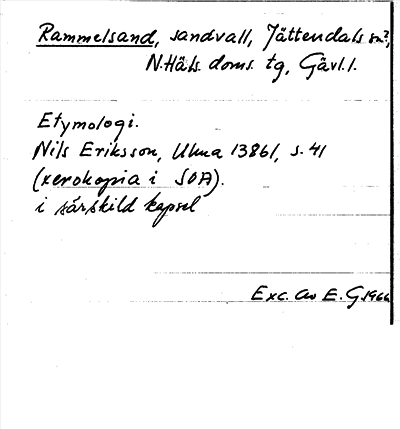 Rammelsand, sandvall, Jättendals sn?,
N.Häls. doms. tg, Gävl.l.
Etymologi.
Nils Eriksson, Uluna 13861, s. 41
(xerokopia i SOA).
i särskild kapsel
Exc. av E. G. 1966